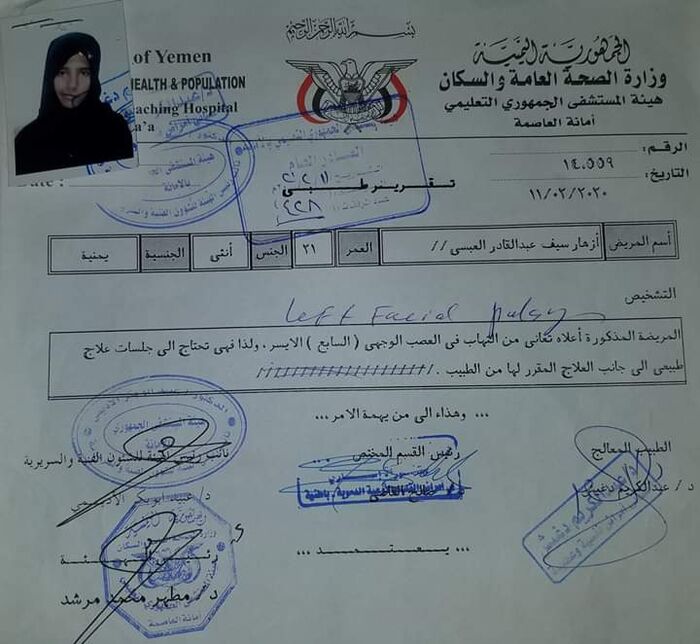 بسم الله الرحمن الرحيم
of Yemen
HEALTH & POPULATION
eaching Hospital
a'a
الجمهورية اليمنية
وزارة الصحة العامة والسكان
هيئة المستشفى الجمهوري التعليمي
أمانة العاصمة
الرقم:
١٤.٥٥٩
التاريخ:
١١/٠٢/٢٠٢٠
تقرير طبي
٢٢٨
أسم المريض أزهار سيف عبدالقادر العبسي // العمر ٣١ الجنس أنثى الجنسية يمنية
التشخيص
Left Facial palsy
المريضة المذكورة أعلاه تعاني من التهاب في العصب الوجهي ( السابع ) الايسر، ولذا فهي تحتاج الى جلسات علاج
طبيعي الى جانب العلاج المقرر لها من الطبيب .
... وهذاء الى من يهمة الامر ...
الطبيب المعالج
رئيس القسم المختص
نائب رئيس الهيئة للشئون الفنية والسريرية
د / عبدالكريم دغيش
د/ عبيد ابوبكر الاديمي
... يعتمد ...
رئيس الهيئة
د/ مطهر محمد مرشد
أمانة العاصمة